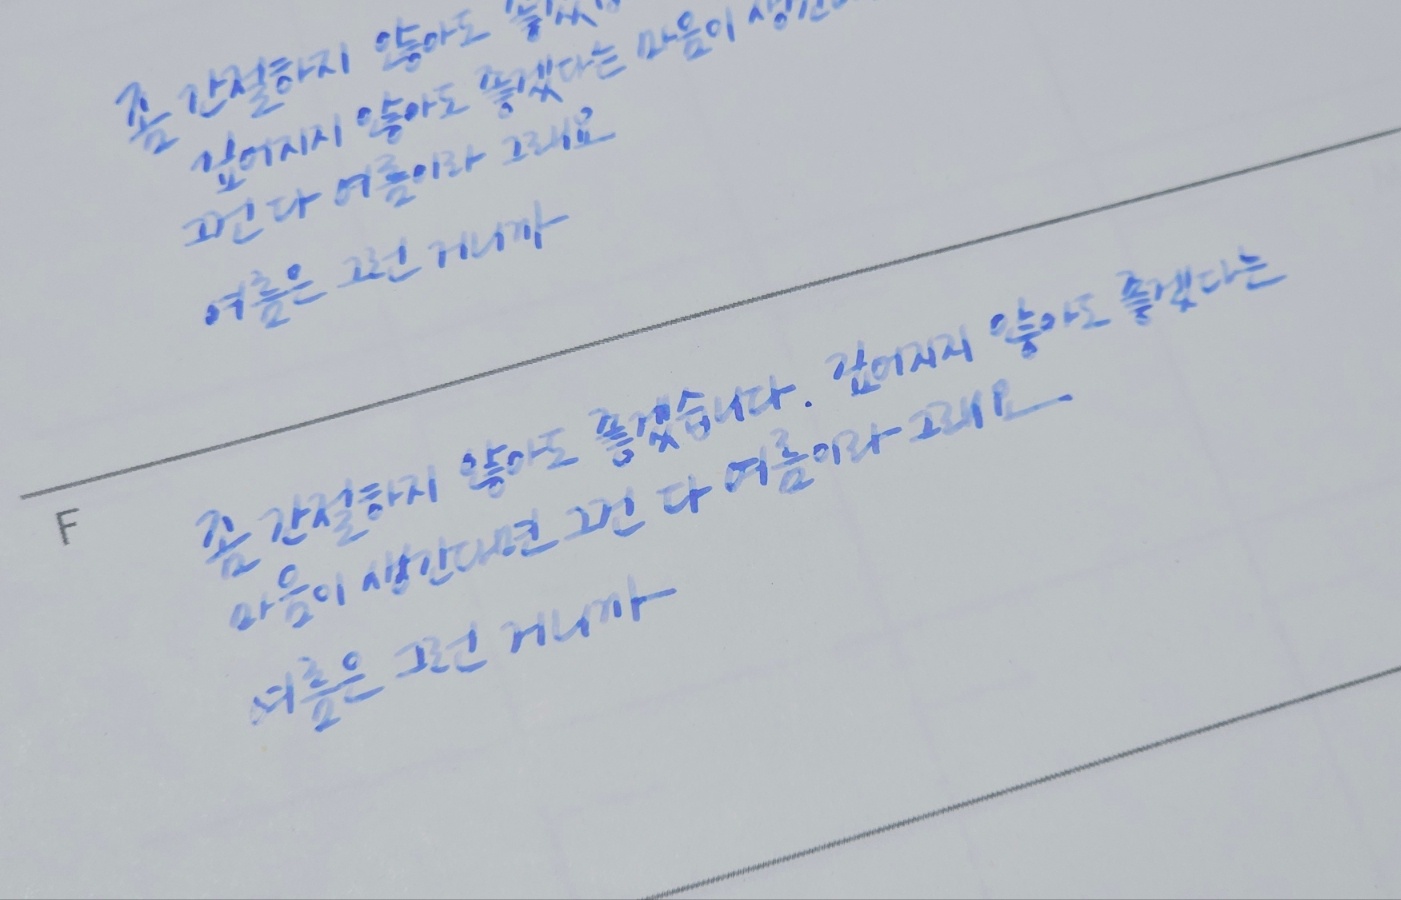 좀 간절하지 않아도 좋겠습
깊어지지 않아도 좋겠다는 마음이 생긴다
그건 다 여름이라 그래요
여름은 그런 거니까
F
좀 간절하지 않아도 좋겠습니다. 깊어지지 않아도 좋겠다는
마음이 생긴다면 그건 다 여름이라 그래요
여름은 그런 거니까